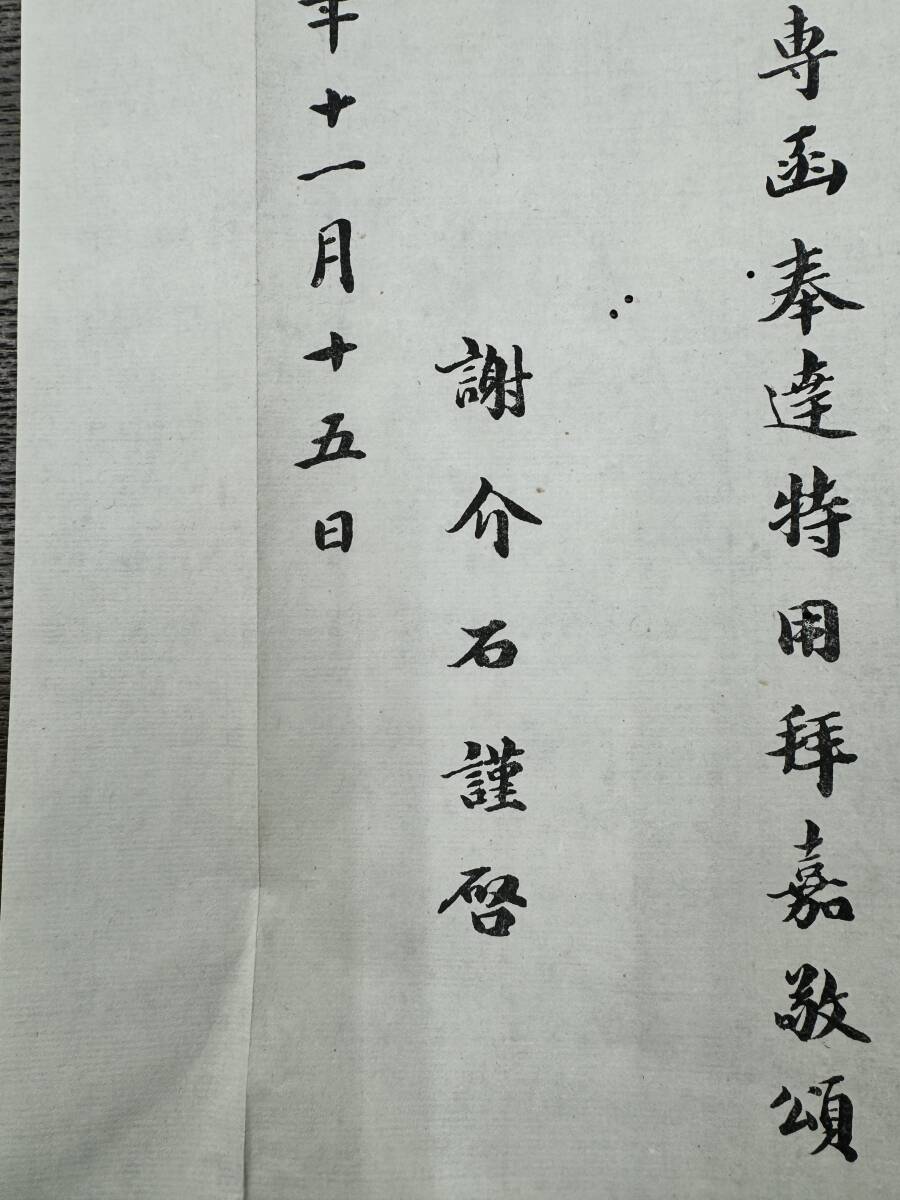 専函奉達特用拜嘉敬頌
謝介石謹啓
年十一月十五日